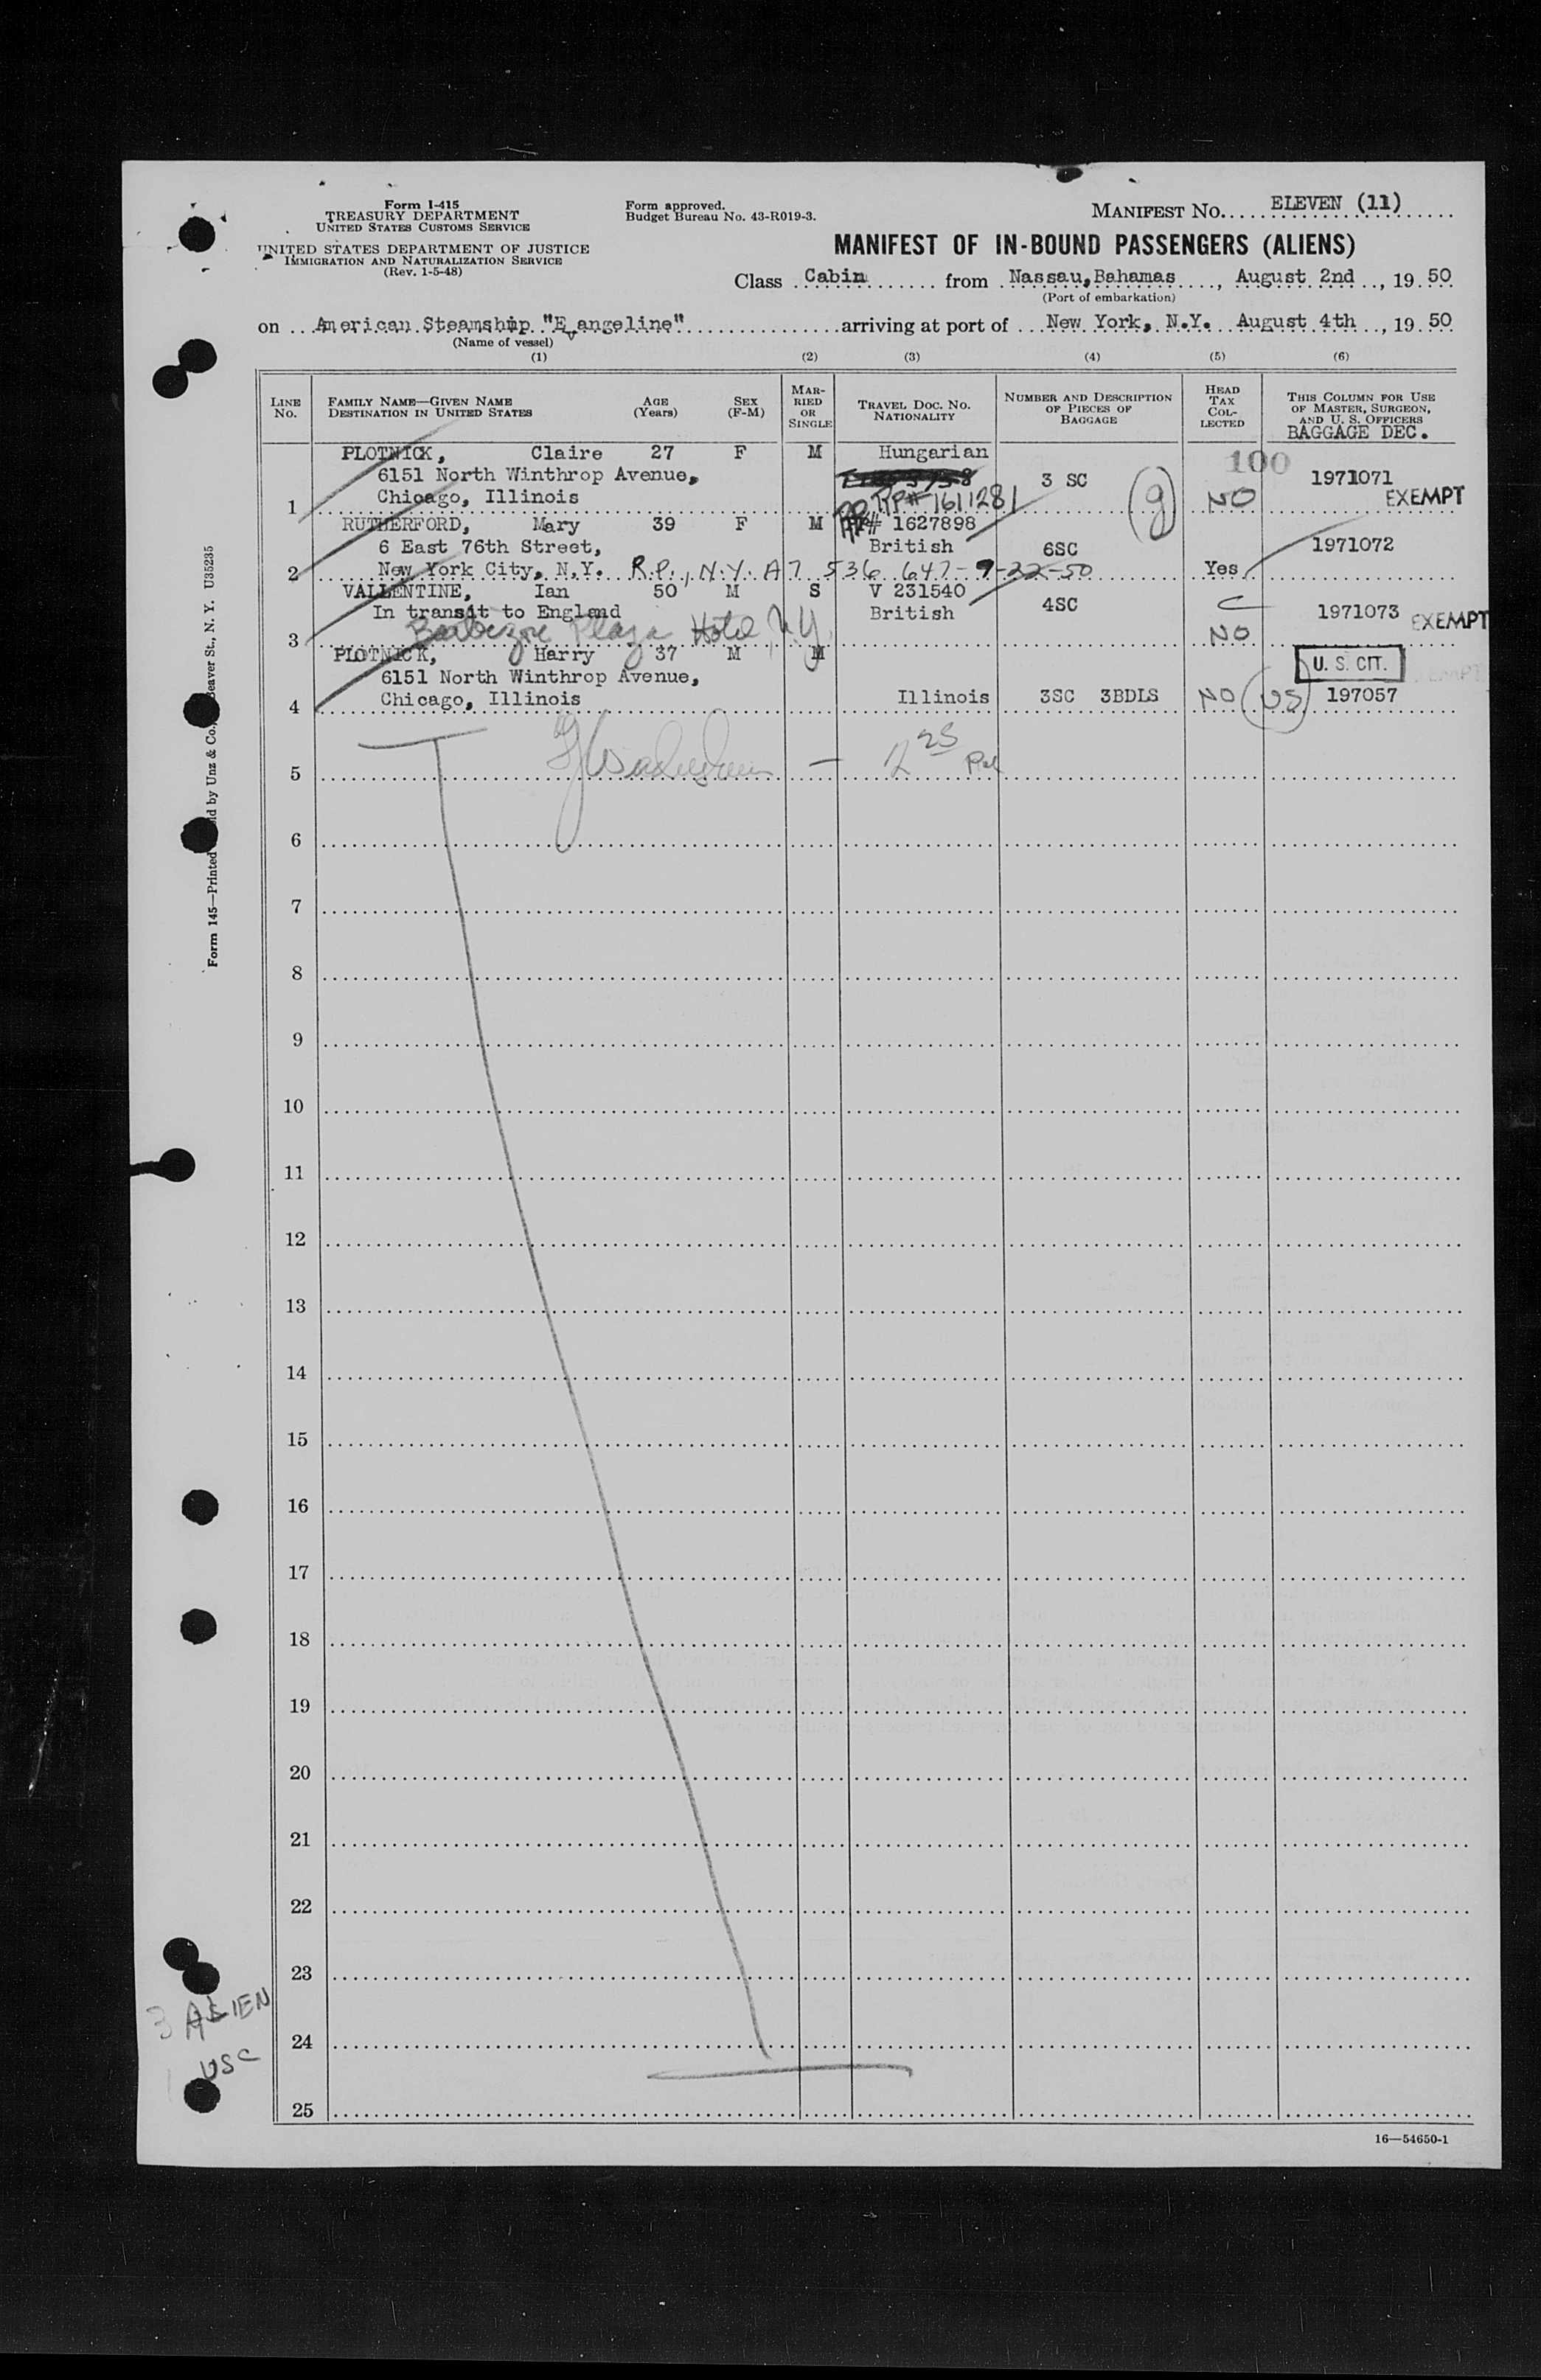 Form I-415
TREASURY DEPARTMENT
UNITED STATES CUSTOMS SERVICE
UNITED STATES DEPARTMENT OF JUSTICE
IMMIGRATION AND NATURALIZATION SERVICE
(Rev. 1-5-48)
Form approved.
Budget Bureau No. 43-R019-3.
MANIFEST No. ELEVEN (11)
MANIFEST OF IN-BOUND PASSENGERS (ALIENS)
Class Cabin from Nassau, Bahamas, August 2nd, 19 50
(Port of embarkation)
on American Steamship "Evangeline" arriving at port of New York, N.Y. August 4th, 19 50
(Name of vessel)
(1) (2) (3) (4) (5) (6)
LINE No. FAMILY NAME—GIVEN NAME DESTINATION IN UNITED STATES AGE (Years) SEX (F-M) MARRIED OR SINGLE TRAVEL DOC. NO. NATIONALITY NUMBER AND DESCRIPTION OF PIECES OF BAGGAGE HEAD TAX COLLECTED THIS COLUMN FOR USE OF MASTER, SURGEON, AND U. S. OFFICERS
BAGGAGE DEC.
PLOTNICK, Claire 27 F M Hungarian 100
6151 North Winthrop Avenue, 3 SC 1971071
1 Chicago, Illinois RP# 1611281 (9) NO EXEMPT
RUTHERFORD, Mary 39 F M PP# 1627898
6 East 76th Street, British 6SC 1971072
2 New York City, N.Y. R.P., N.Y. A7 536 647-9-22-50 Yes
VALLENTINE, Ian 50 M S V 231540
In transit to England British 4SC C 1971073 EXEMPT
3 Barbizon Plaza Hotel N.Y. NO
PLOTNICK, Harry 37 M M U. S. CIT.
6151 North Winthrop Avenue,
4 Chicago, Illinois Illinois 3SC 3BDLS NO US 197057
5
6
7
8
9
10
11
12
13
14
15
16
17
18
19
20
21
22
23
24
25
3 ALIEN
1 USC
16—54650-1
Form 145—Printed and by Unz & Co., Beaver St., N. Y. U35235